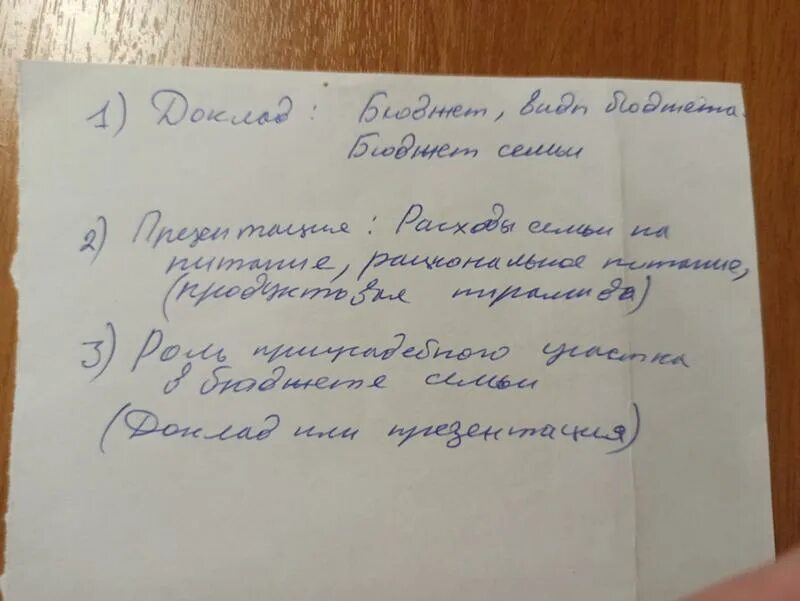 1) Доклад: Бюджет, виды бюджета.
Бюджет семьи
2) Презентация: Расходы семьи на
питание, рациональное питание,
(продуктовая пирамида)
3) Роль приусадебного участка
в бюджете семьи
(Доклад или презентация)